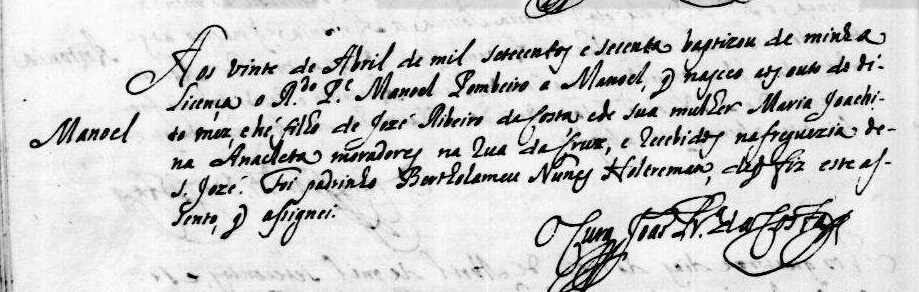 Aos vinte de Abril de mil setecentos e secenta baptizou de minha
Licença o R.do P.e Manoel Pombeiro a Manoel, q nasceo aos outo do di-
Manoel
to mez, e hé filho de Jozé Ribeiro da Costa, e de sua mulher Maria Joachi-
na Anacleta moradores na Rua da Cruz, e recebidos na freguezia de
S. Jozé. Foi padrinho Bertholameu Nunes Holtreman, de q fiz este as-
sento, q assignei.
O Cura João da Costa